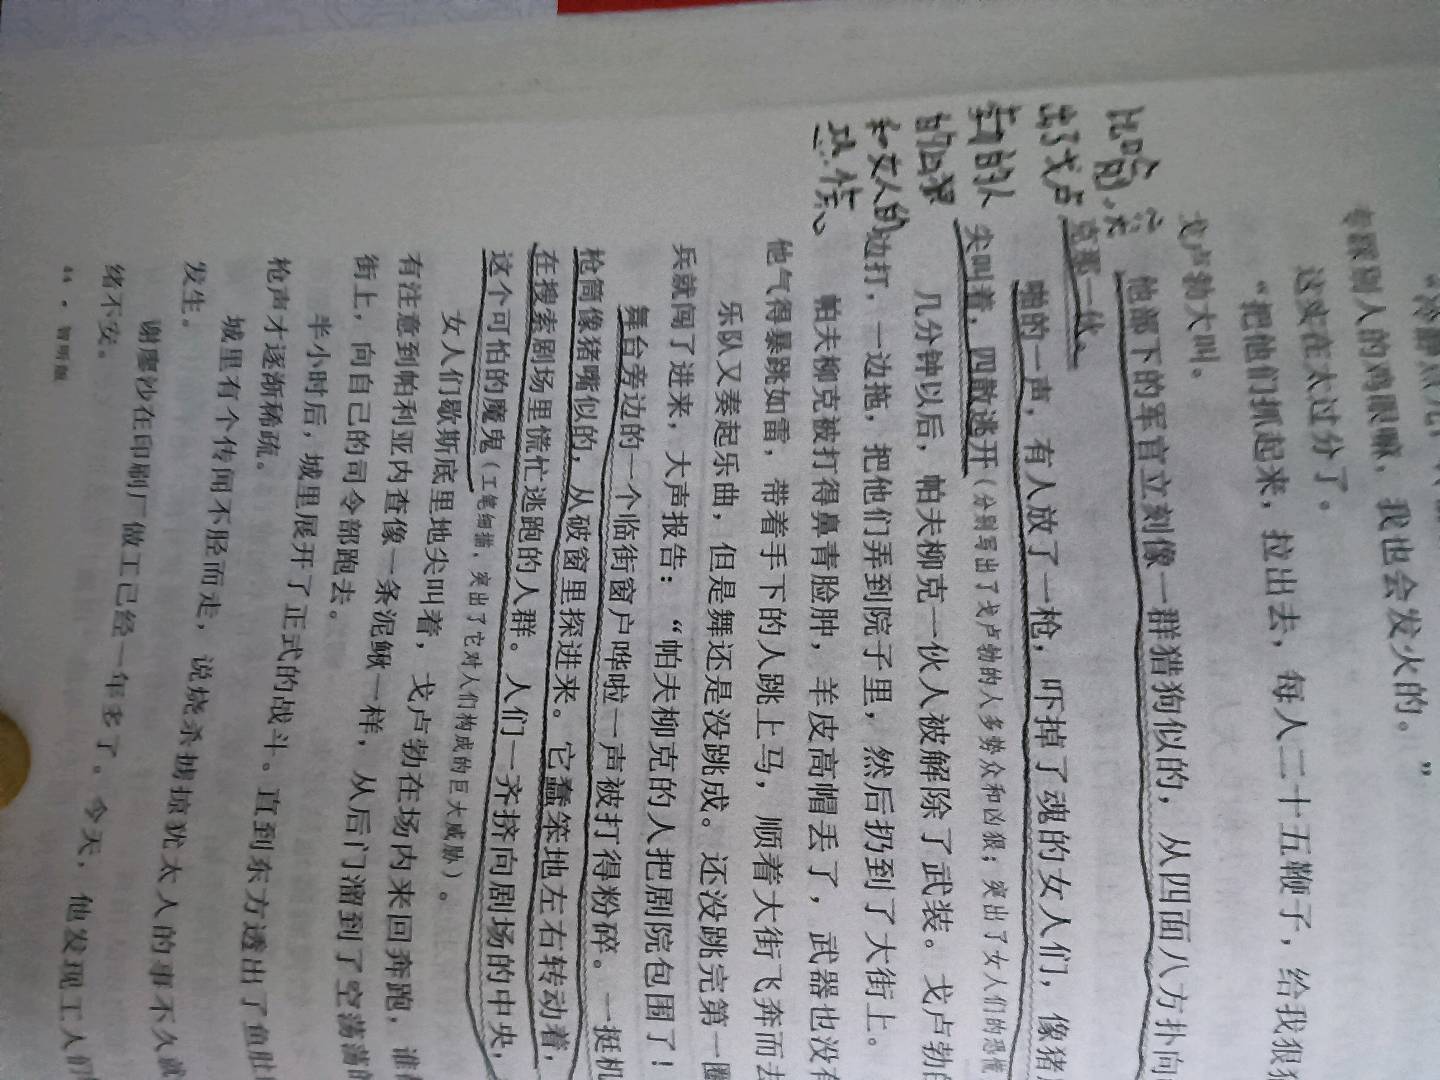 专踩别人的鸡眼嘛，我也会发火的。”
这实在太过分了。
“把他们抓起来，拉出去，每人二十五鞭子，给我狠
戈卢勃大叫。
他部下的军官立刻像一群猎狗似的，从四面八方扑向
克那一伙。
啪的一声，有人放了一枪，吓掉了魂的女人们，像猪
尖叫着，四散逃开（分别写出了戈卢勃的人多势众和凶狠；突出了女人们的恐慌
几分钟以后，帕夫柳克一伙人被解除了武装。戈卢勃的
边打，一边拖，把他们弄到院子里，然后扔到了大街上。
帕夫柳克被打得鼻青脸肿，羊皮高帽丢了，武器也没有
他气得暴跳如雷，带着手下的人跳上马，顺着大街飞奔而去
乐队又奏起乐曲，但是舞还是没跳成。还没跳完第一圈
兵就闯了进来，大声报告：“帕夫柳克的人把剧院包围了！
舞台旁边的一个临街窗户哗啦一声被打得粉碎。一挺机
枪筒像猪嘴似的，从破窗里探进来。它蠢笨地左右转动着，
在搜索剧场里慌忙逃跑的人群。人们一齐挤向剧场的中央，
这个可怕的魔鬼（工笔细描，突出了它对人们构成的巨大威胁）。
女人们歇斯底里地尖叫着，戈卢勃在场内来回奔跑，谁
有注意到帕利亚内查像一条泥鳅一样，从后门溜到了空荡荡的
街上，向自己的司令部跑去。
半小时后，城里展开了正式的战斗。直到东方透出了鱼肚
枪声才逐渐稀疏。
城里有个传闻不胫而走，说烧杀掳掠犹太人的事不久就
发生。
谢廖沙在印刷厂做工已经一年多了。今天，他发现工人们
绪不安。
44 • 智斯版
比喻
出了戈卢
勃的人
的凶狠
和女人的